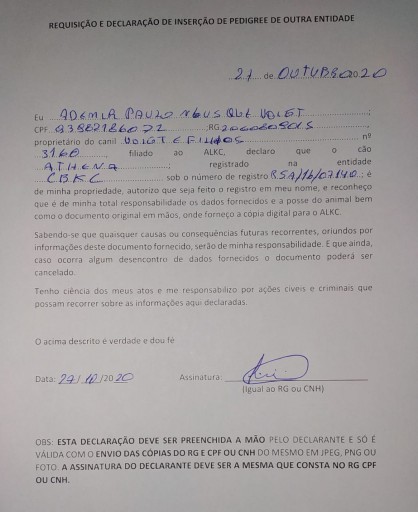 REQUISIÇÃO E DECLARAÇÃO DE INSERÇÃO DE PEDIGREE DE OUTRA ENTIDADE
21 de OUTUBRO 2020
Eu ADEMIR PAULO
CPF RG
proprietário do canil VOIGT E FILHOS nº
3160 filiado ao ALKC, declaro que o cão
ATHENA registrado na entidade
CBKC sob o número de registro RSA/16/07140; é
de minha propriedade, autorizo que seja feito o registro em meu nome, e reconheço
que é de minha total responsabilidade os dados fornecidos e a posse do animal bem
como o documento original em mãos, onde forneço a cópia digital para o ALKC.
Sabendo-se que quaisquer causas ou consequências futuras recorrentes, oriundos por
informações deste documento fornecido, serão de minha responsabilidade. E que ainda,
caso ocorra algum desencontro de dados fornecidos o documento poderá ser
cancelado.
Tenho ciência dos meus atos e me responsabilizo por ações cíveis e criminais que
possam recorrer sobre as informações aqui declaradas.
O acima descrito é verdade e dou fé
Data: /10/2020 Assinatura:
(Igual ao RG ou CNH)
OBS: ESTA DECLARAÇÃO DEVE SER PREENCHIDA A MÃO PELO DECLARANTE E SÓ É
VÁLIDA COM O ENVIO DAS CÓPIAS DO RG E CPF OU CNH DO MESMO EM JPEG, PNG OU
FOTO. A ASSINATURA DO DECLARANTE DEVE SER A MESMA QUE CONSTA NO RG CPF
OU CNH.